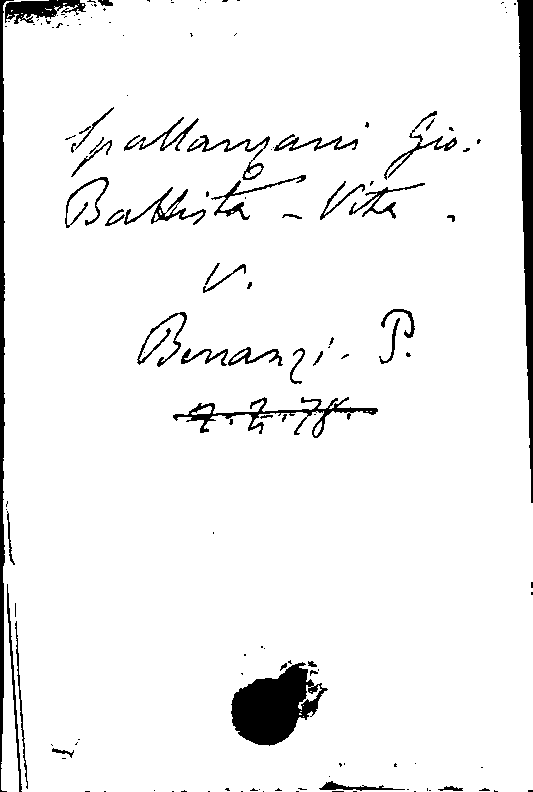 Spallanzani Gio:
Battista - Vita -
V.
Benanzi. P.
Z. Z. 78.